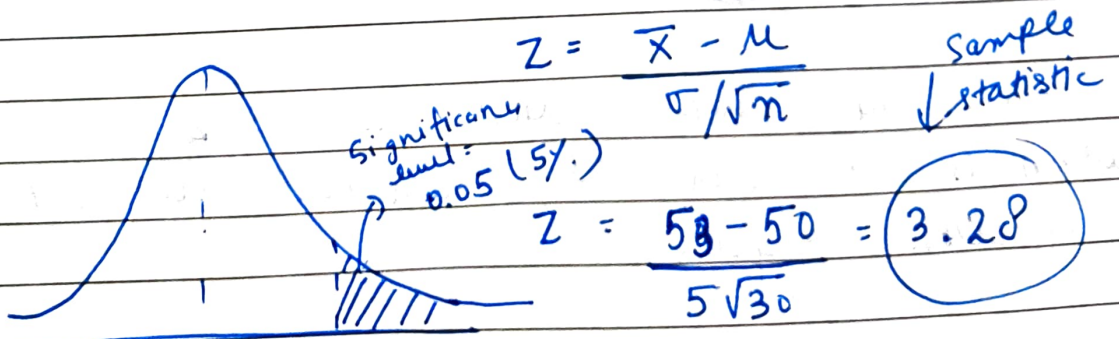 Z = x̄ - μ / σ/√n
Sample
statistic
Significance
level =
0.05 (5%.)
Z = 53 - 50 / 5√30 = 3.28